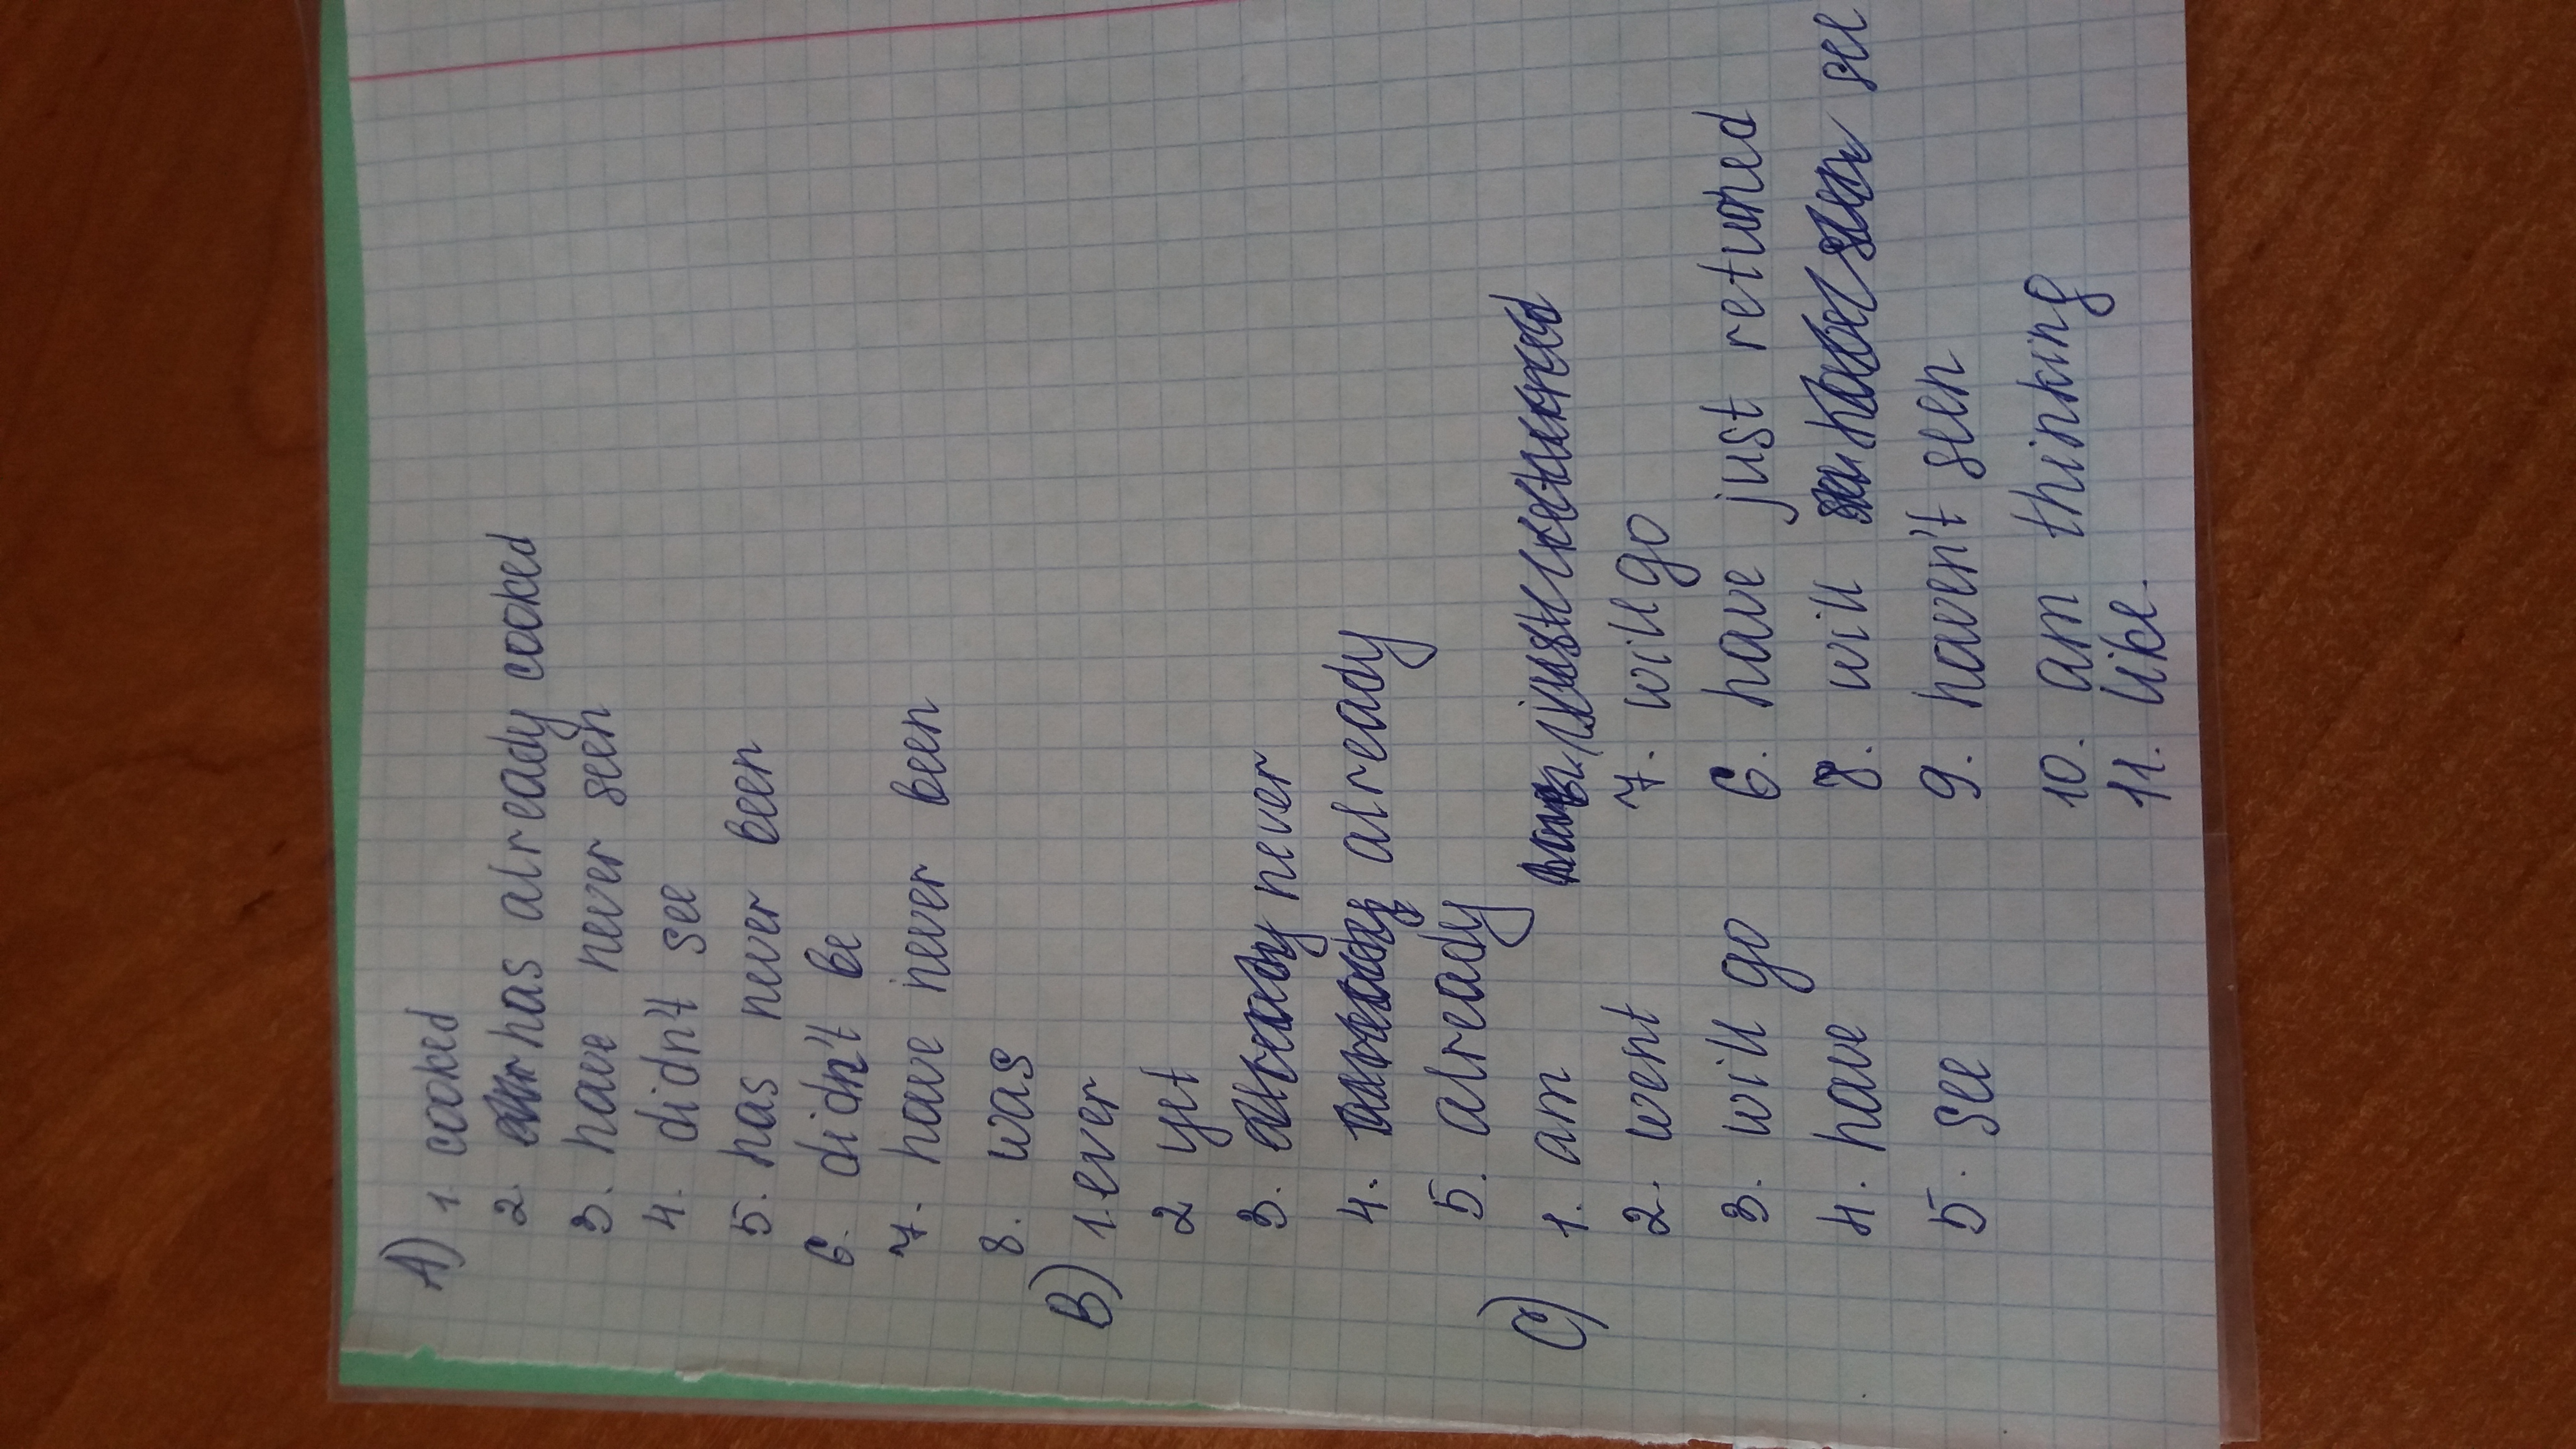 A) 1. cooked
2. has already cooked
3. have never seen
4. didn't see
5. has never been
6. didn't be
7. have never been
8. was
B) 1. ever
2 yet
3. never
4. already
5. already
C) 1. am
2. went
3. will go
4. have
5. see
7. will go
6. have just retured
8. will see
9. haven't sen
10. am thinking
11. like.